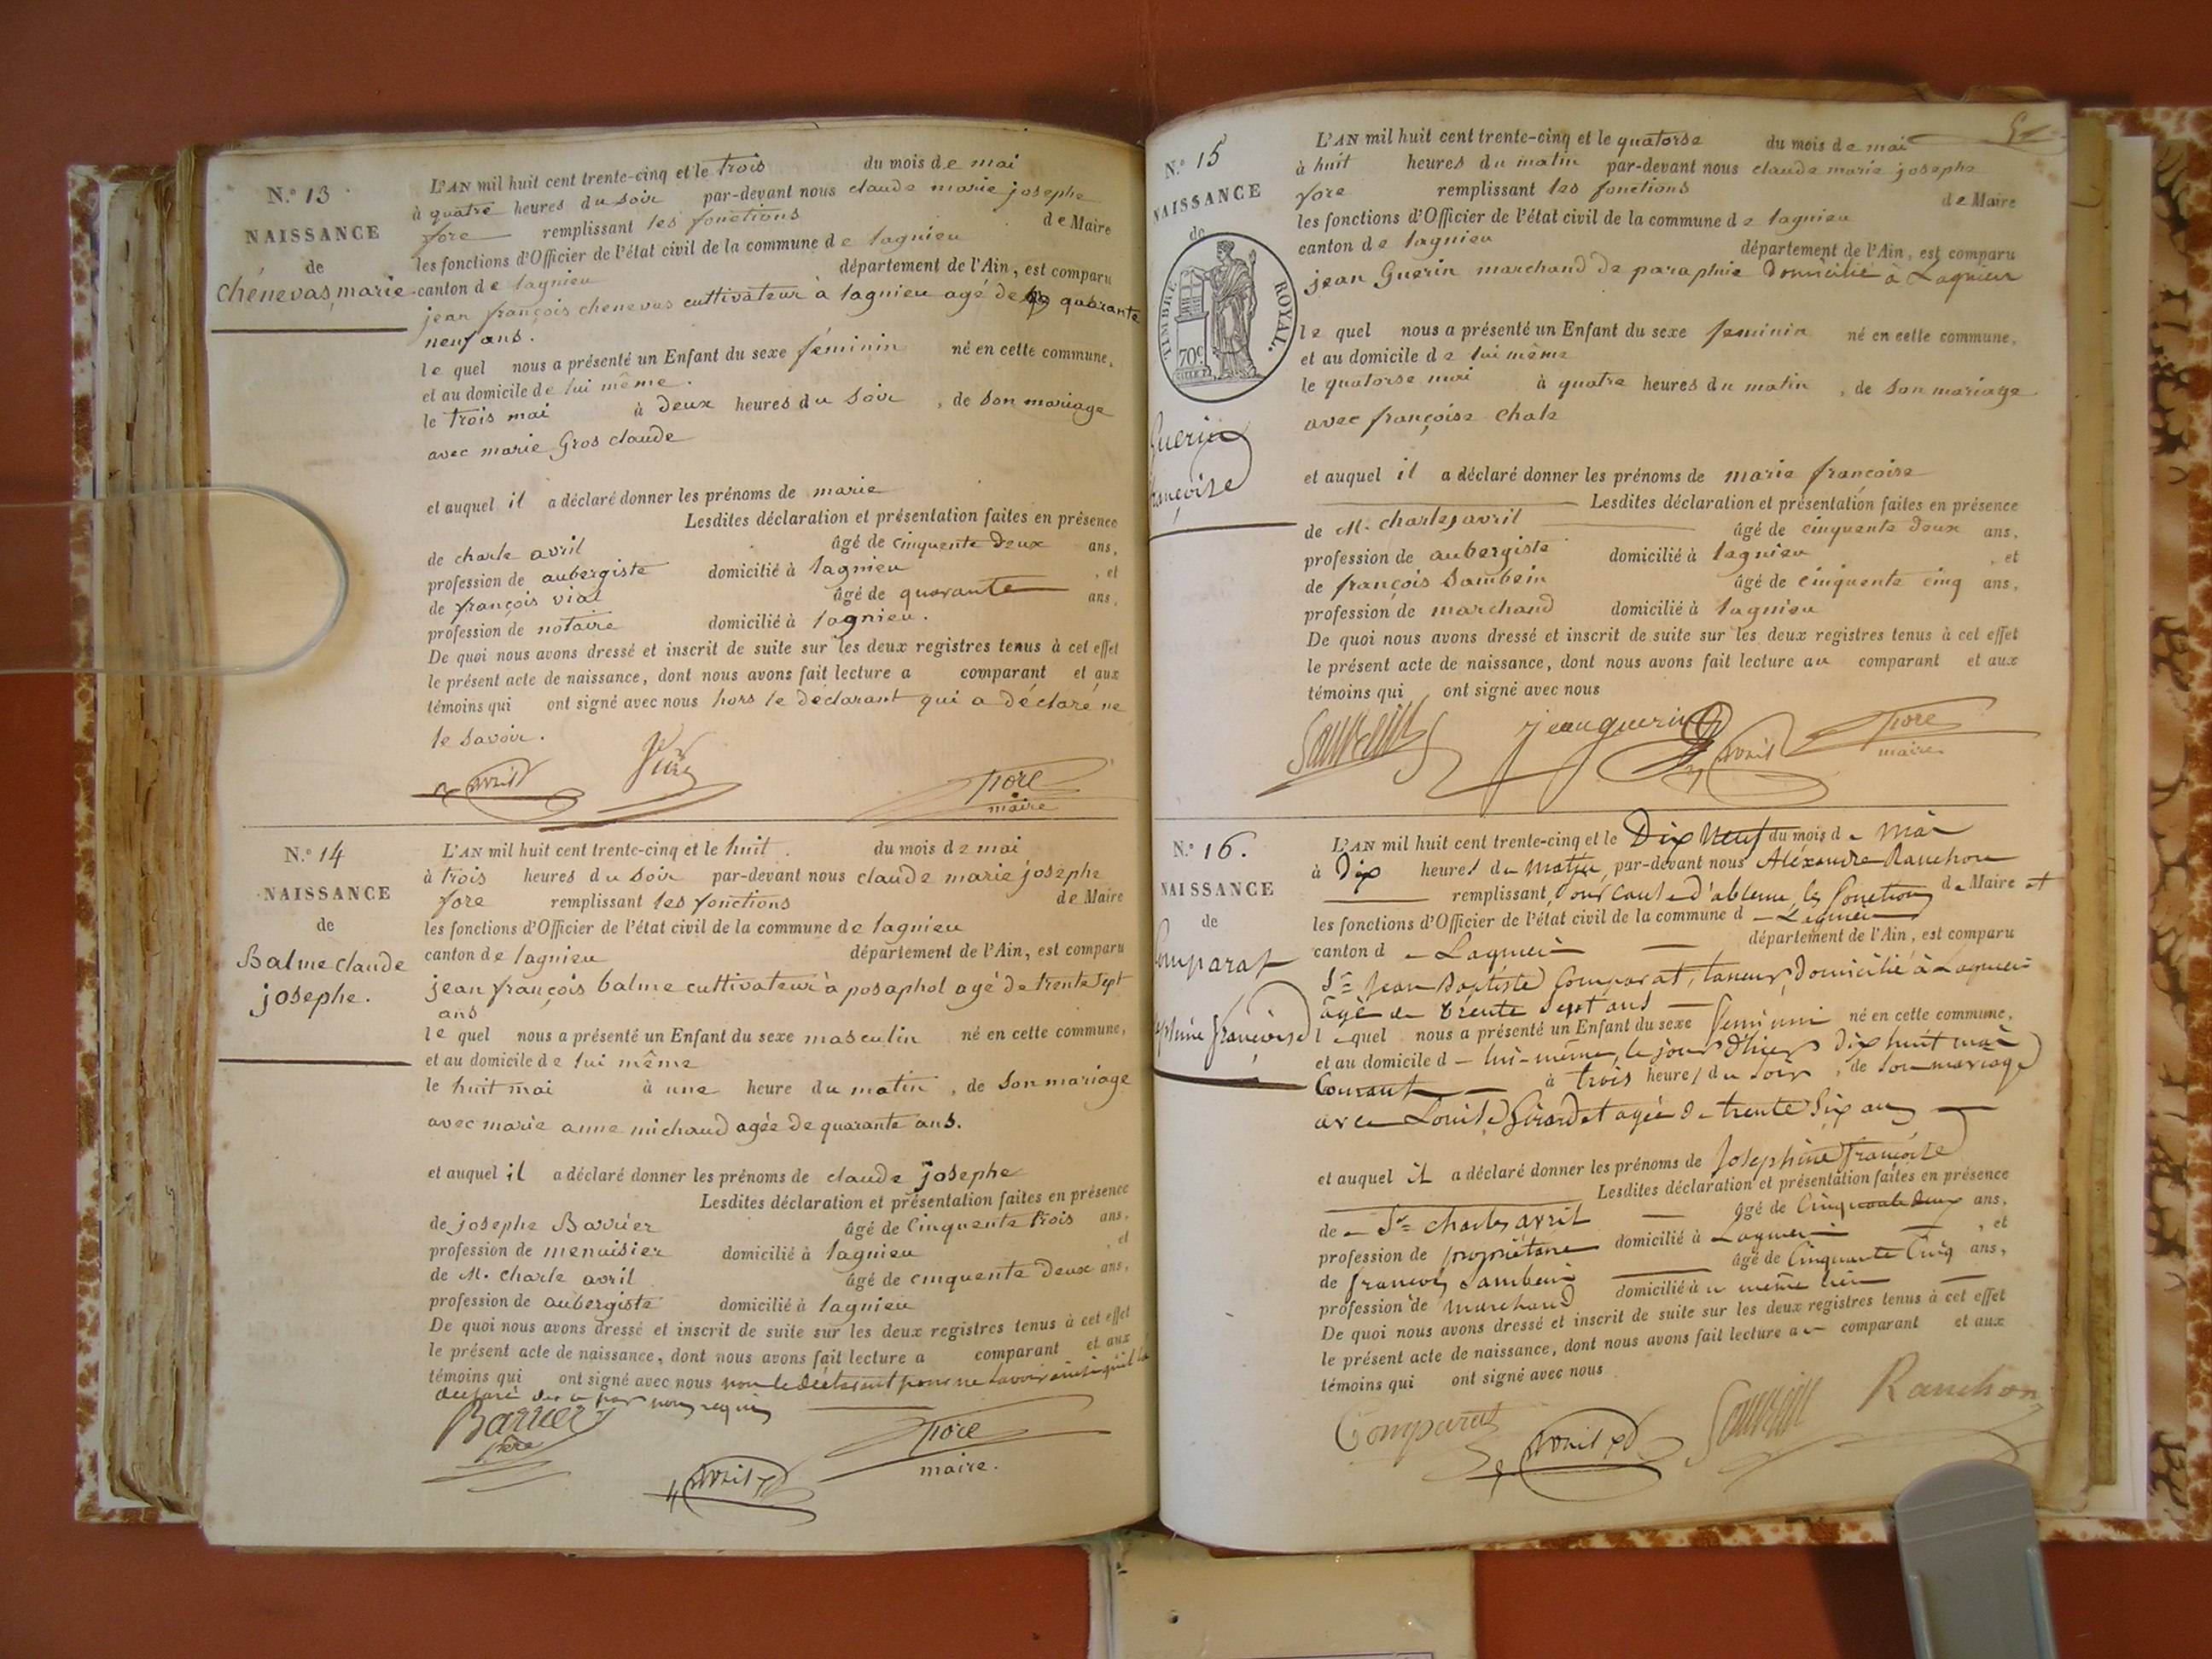 N.° 13
NAISSANCE
de
chénevas, marie
L'AN mil huit cent trente-cinq et le trois du mois de mai
à quatre heures du soir par-devant nous claude marie josephe
fore remplissant les fonctions de Maire
les fonctions d'Officier de l'état civil de la commune de lagnieu
canton de lagnieu département de l'Ain, est comparu
jean françois chenevas cultivateur à lagnieu agé de quarante
neuf ans.
le quel nous a présenté un Enfant du sexe féminin né en cette commune,
et au domicile de lui même.
le trois mai à deux heures du soir, de son mariage
avec marie Gros claude
et auquel il a déclaré donner les prénoms de marie
Lesdites déclaration et présentation faites en présence
de charle avril âgé de cinquente deux ans,
profession de aubergiste domicilié à lagnieu, et
de françois vial âgé de quarante ans,
profession de notaire domicilié à lagnieu.
De quoi nous avons dressé et inscrit de suite sur les deux registres tenus à cet effet
le présent acte de naissance, dont nous avons fait lecture a comparant et aux
témoins qui ont signé avec nous hors le déclarant qui a déclaré ne
le savoir.
avril fore
maire
N.° 14
NAISSANCE
de
Balme claude
josephe.
L'AN mil huit cent trente-cinq et le huit. du mois de mai
à trois heures du soir par-devant nous claude marie josephe
fore remplissant les fonctions de Maire
les fonctions d'Officier de l'état civil de la commune de lagnieu
canton de lagnieu département de l'Ain, est comparu
jean françois balme cultivateur à posaphol agé de trente sept
ans
le quel nous a présenté un Enfant du sexe masculin né en cette commune,
et au domicile de lui même
le huit mai à une heure du matin, de son mariage
avec marie anne michaud agée de quarante ans.
et auquel il a déclaré donner les prénoms de claude josephe
Lesdites déclaration et présentation faites en présence
de josephe Barrier âgé de Cinquente trois ans,
profession de menuisier domicilié à lagnieu, et
de M. charle avril âgé de cinquente deux ans,
profession de aubergiste domicilié à lagnieu
De quoi nous avons dressé et inscrit de suite sur les deux registres tenus à cet effet
le présent acte de naissance, dont nous avons fait lecture a comparant et aux
témoins qui ont signé avec nous non le déclarant pour ne savoir ainsi qu'il l'a
declaré de ce par nous requis
Barrier fore
père
avril maire.
N.° 15
NAISSANCE
de
TIMBRE ROYAL.
70c
Guerin
françoise
L'AN mil huit cent trente-cinq et le quatorse du mois de mai
à huit heures du matin par-devant nous claude marie josephe
fore remplissant les fonctions de Maire
les fonctions d'Officier de l'état civil de la commune de lagnieu
canton de lagnieu département de l'Ain, est comparu
jean Guerin marchand de paraphie domicilié à Lagnieu
le quel nous a présenté un Enfant du sexe feminin né en cette commune,
et au domicile de lui même
le quatorse mai à quatre heures du matin, de son mariage
avec françoise chale
et auquel il a déclaré donner les prénoms de marie françoise
Lesdites déclaration et présentation faites en présence
de M. charles avril âgé de cinquente deux ans,
profession de aubergiste domicilié à lagnieu, et
de françois Sambein âgé de cinquente cinq ans,
profession de marchand domicilié à lagnieu
De quoi nous avons dressé et inscrit de suite sur les deux registres tenus à cet effet
le présent acte de naissance, dont nous avons fait lecture au comparant et aux
témoins qui ont signé avec nous
jean guerin avril fore
maire
N.° 16.
NAISSANCE
de
Comparat
françoise
L'AN mil huit cent trente-cinq et le Dix Neuf du mois de Mai
à Dix heures du Matin, par-devant nous Aléxandre Ranchon
remplissant, pour cause d'absence, les fonctions de Maire et
les fonctions d'Officier de l'état civil de la commune de Lagnieu
canton de Lagnieu département de l'Ain, est comparu
Sr. Jean Baptiste Comparat, taneur, domicilié à Lagnieu
âgé de trente sept ans
le quel nous a présenté un Enfant du sexe feminin né en cette commune,
et au domicile de lui-même, le jour d'hier dix huit mai
Courant à trois heures du soir, de son mariage
avec Louise Girardet agée de trente six ans
et auquel il a déclaré donner les prénoms de Joséphine françoise
Lesdites déclaration et présentation faites en présence
de Sr. charles avril âgé de Cinquante deux ans,
profession de propriétaire domicilié à Lagnieu, et
de françois Sambein âgé de Cinquante Cinq ans,
profession de marchand domicilié à u même lieu
De quoi nous avons dressé et inscrit de suite sur les deux registres tenus à cet effet
le présent acte de naissance, dont nous avons fait lecture au comparant et aux
témoins qui ont signé avec nous
Comparat avril Ranchon